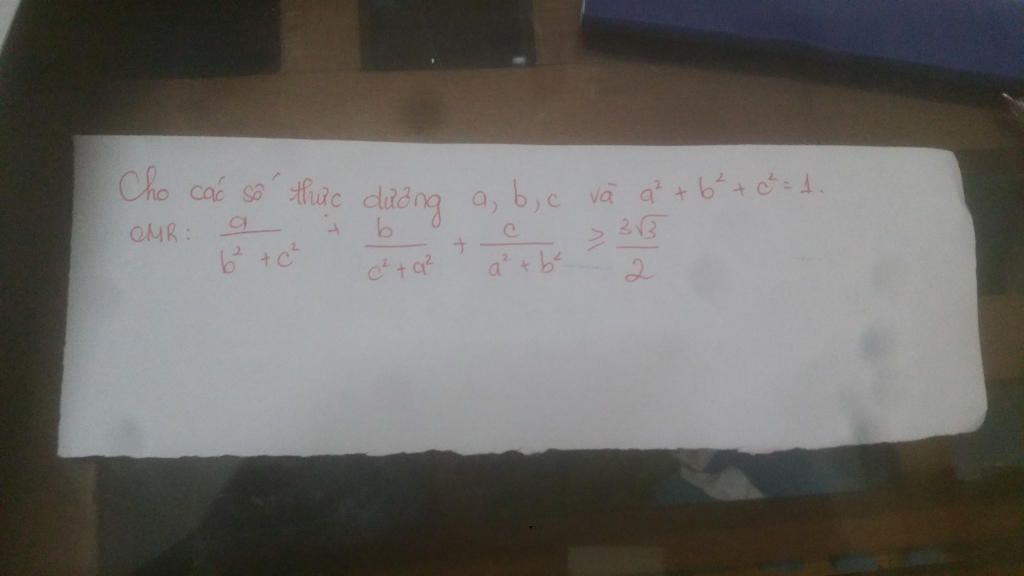 Cho các số thức dưỡng a, b, c và a² + b² + c² = 1.
CMR: a/(b² + c²) + b/(c² + a²) + c/(a² + b²) ≥ 3√3/2